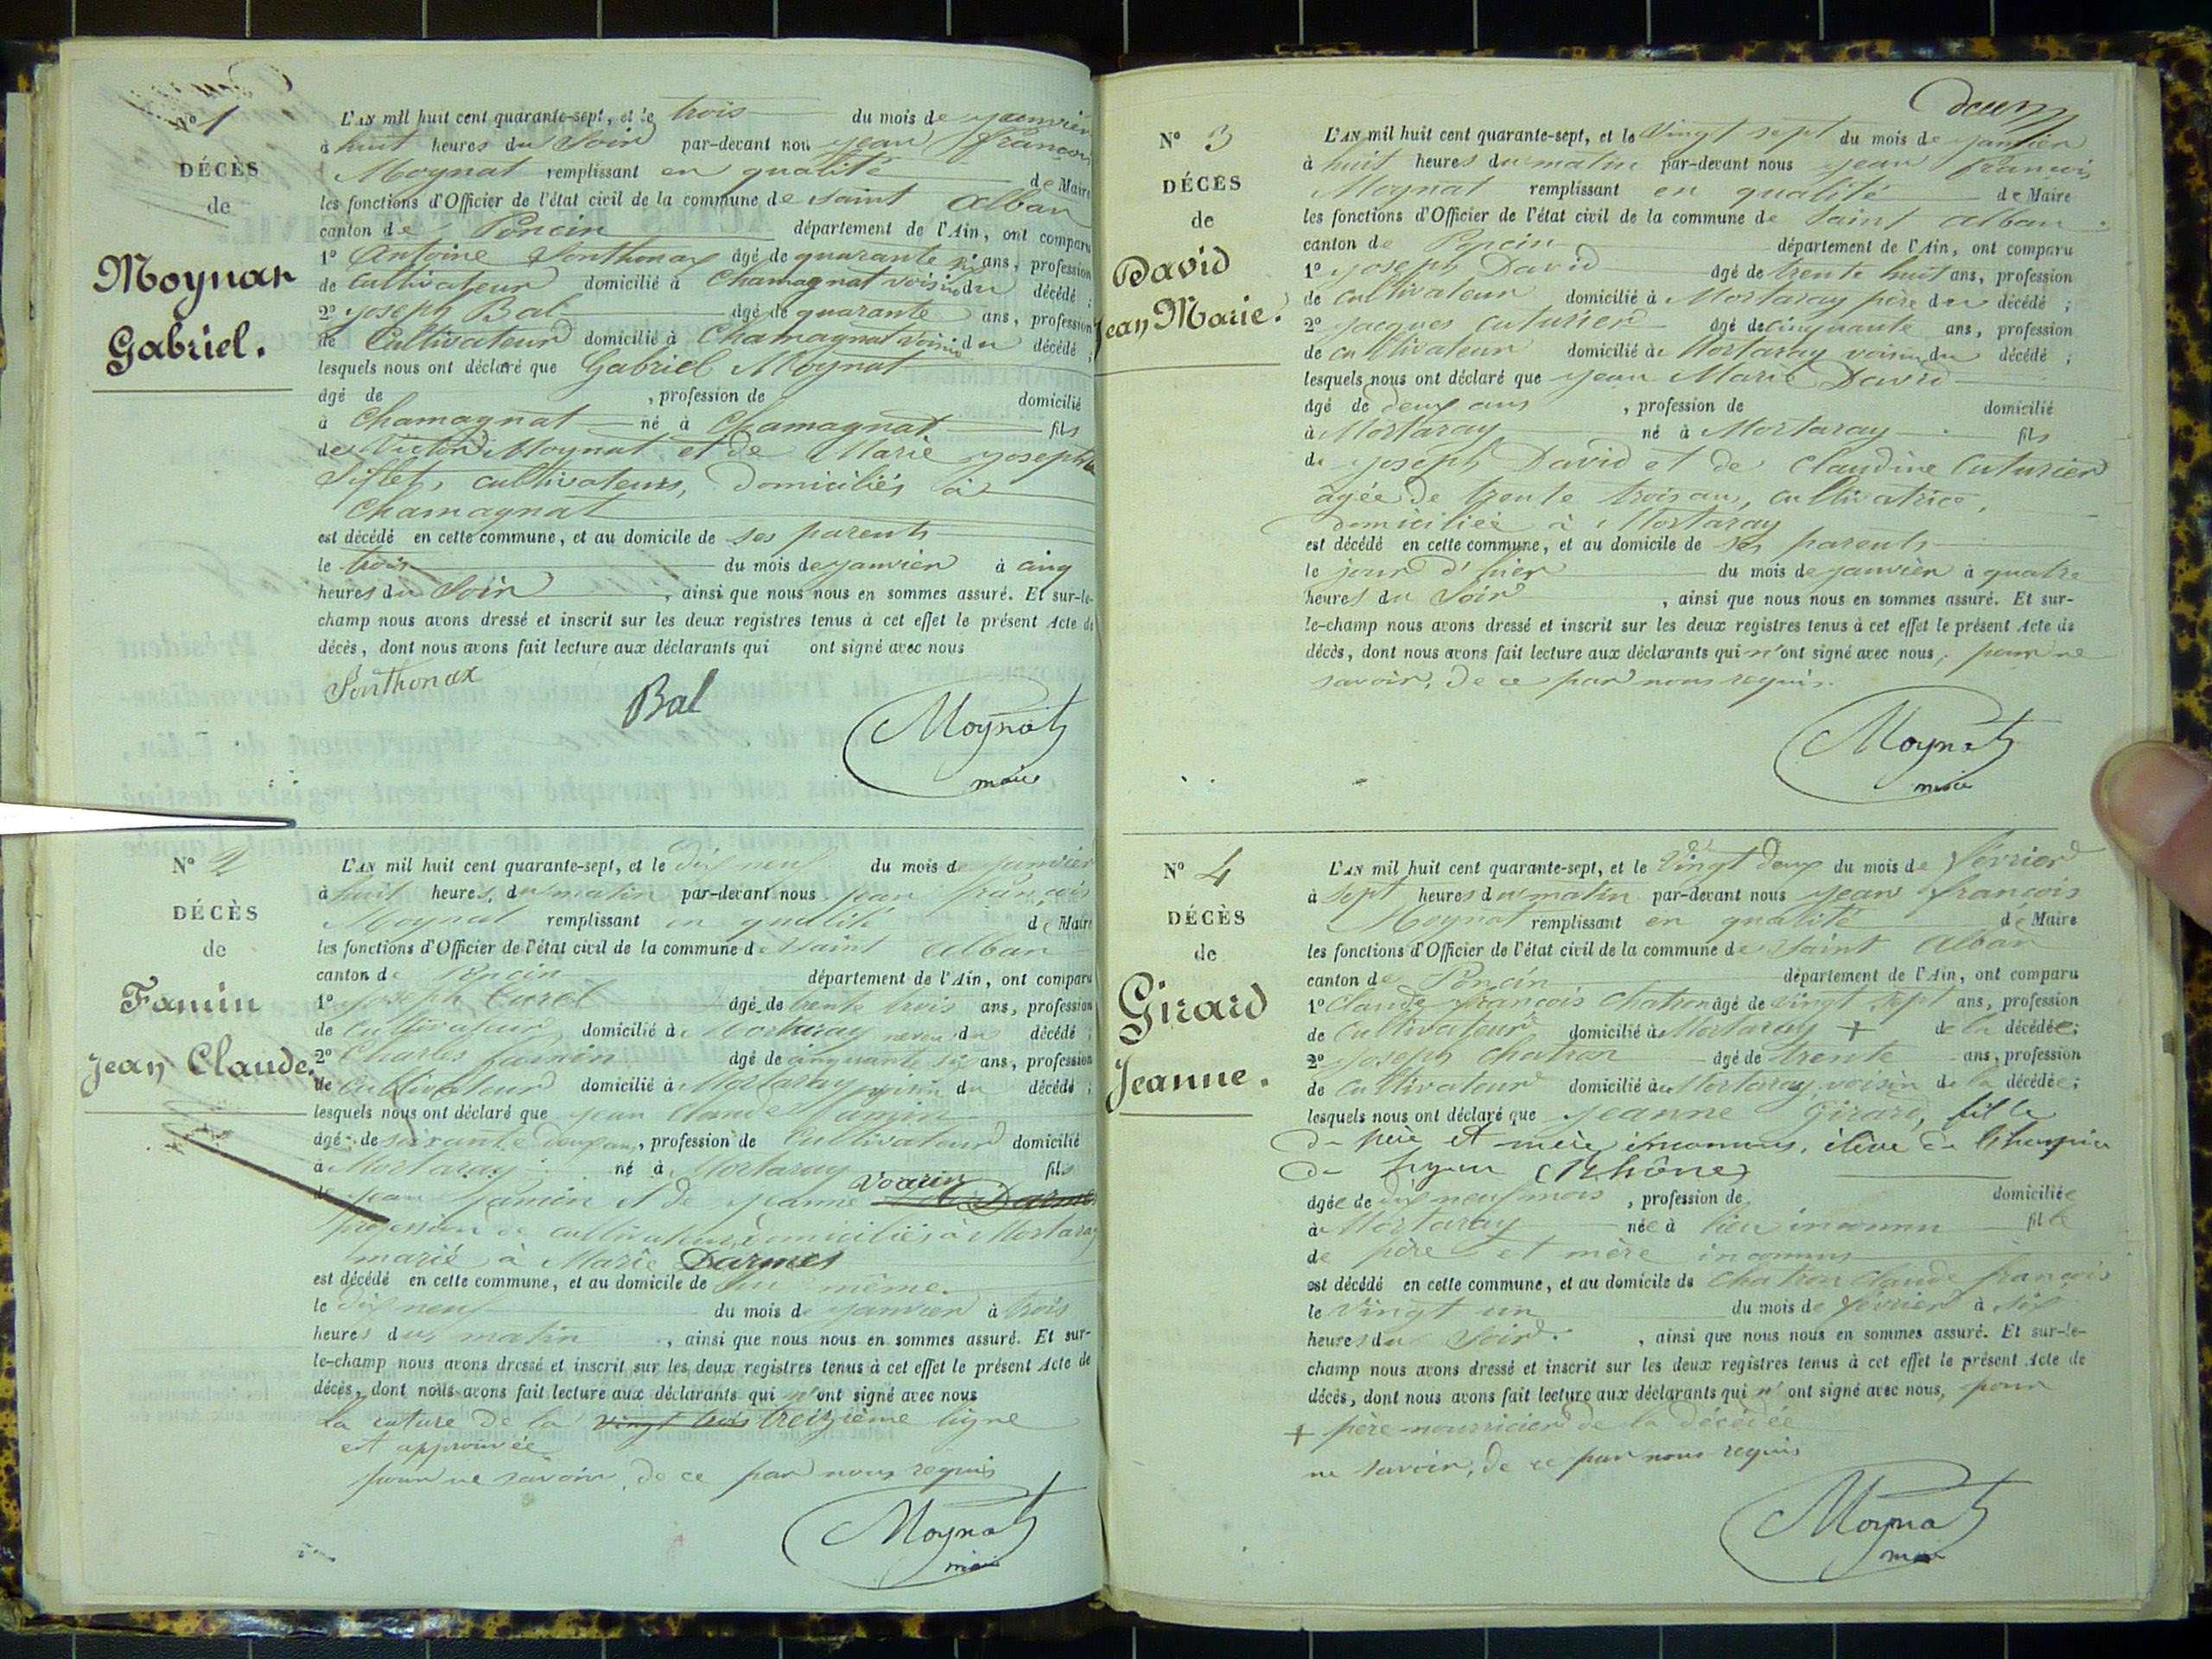 N° 1
DÉCÈS
de
Moynat
Gabriel.
L'AN mil huit cent quarante-sept, et le trois du mois de janvier
à huit heures du soir par-devant nous jean françois
Moynat remplissant en qualité de Maire
les fonctions d'Officier de l'état civil de la commune de saint Alban
canton de Poncin département de l'Ain, ont comparu
1° Antoine Sonthonax âgé de quarante six ans, profession
de Cultivateur domicilié à Chamagnat voisin du décédé ;
2° joseph Bal âgé de quarante ans, profession
de Cultivateur domicilié à Chamagnat voisin du décédé ;
lesquels nous ont déclaré que Gabriel Moynat
âgé de , profession de domicilié
à Chamagnat né à Chamagnat fils
de Victor Moynat, et de Marie josephte
Siflet, cultivateurs, domiciliés à
Chamagnat
est décédé en cette commune, et au domicile de ses parents
le trois du mois de janvier à cinq
heures du soir , ainsi que nous nous en sommes assuré. Et sur-le-
champ nous avons dressé et inscrit sur les deux registres tenus à cet effet le présent Acte de
décès, dont nous avons fait lecture aux déclarants qui ont signé avec nous
Sonthonax
Bal
Moynat
maire
N° 2
DÉCÈS
de
Famin
Jean Claude.
L'AN mil huit cent quarante-sept, et le dix neuf du mois de janvier
à huit heures du matin par-devant nous jean françois
Moynat remplissant en qualité de Maire
les fonctions d'Officier de l'état civil de la commune de saint Alban
canton de Poncin département de l'Ain, ont comparu
1° joseph Curel âgé de trente trois ans, profession
de Cultivateur domicilié à Mortaray neveu du décédé ;
2° Charles famin âgé de cinquante six ans, profession
de Cultivateur domicilié à Mortaray du décédé ;
lesquels nous ont déclaré que jean Claude famin
âgé de soixante deux ans, profession de Cultivateur domicilié
à Mortaray né à Mortaray fils
de jean famin et de jeanne Voarin
profession de cultivateurs, domiciliés à Mortaray
marié à Marie Darmes
est décédé en cette commune, et au domicile de lui même
le dix neuf du mois de janvier à trois
heures du matin , ainsi que nous nous en sommes assuré. Et sur-
le-champ nous avons dressé et inscrit sur les deux registres tenus à cet effet le présent Acte de
décès, dont nous avons fait lecture aux déclarants qui n'ont signé avec nous
la rature de la vingt trois treizième ligne
est approuvée
pour ne savoir, de ce par nous requis
Moynat
maire
deux
N° 3
DÉCÈS
de
David
Jean Marie.
L'AN mil huit cent quarante-sept, et le vingt sept du mois de janvier
à huit heures du matin par-devant nous jean francois
Moynat remplissant en qualité de Maire
les fonctions d'Officier de l'état civil de la commune de saint alban
canton de Poncin département de l'Ain, ont comparu
1° joseph David âgé de trente huit ans, profession
de cultivateur domicilié à Mortaray père du décédé ;
2° jacques cuturier âgé de cinquante ans, profession
de cultivateur domicilié à Mortaray voisin du décédé ;
lesquels nous ont déclaré que jean Marie David
âgé de deux ans , profession de domicilié
à Mortaray né à Mortaray fils
de joseph David et de Claudine Cuturier
âgée de trente trois ans, cultivatrice,
domiciliée à Mortaray
est décédé en cette commune, et au domicile de ses parents
le jour d'hier du mois de janvier à quatre
heures du soir , ainsi que nous nous en sommes assuré. Et sur-
le-champ nous avons dressé et inscrit sur les deux registres tenus à cet effet le présent Acte de
décès, dont nous avons fait lecture aux déclarants qui n'ont signé avec nous, pour ne
savoir, de ce par nous requis.
Moynat
maire
N° 4
DÉCÈS
de
Girard
Jeanne.
L'AN mil huit cent quarante-sept, et le vingt deux du mois de février
à sept heures du matin par-devant nous jean françois
Moynat remplissant en qualité de Maire
les fonctions d'Officier de l'état civil de la commune de saint Alban
canton de Poncin département de l'Ain, ont comparu
1° Claude françois Chatron âgé de vingt sept ans, profession
de Cultivateur domicilié à Mortaray + de la décédée;
2° joseph Chatron âgé de trente ans, profession
de Cultivateur domicilié à Mortaray, voisin de la décédée;
lesquels nous ont déclaré que jeanne Girard, fille
de père et mère inconnus, élève de l'hospice
de Lyon (Rhône)
âgée de dix neuf mois , profession de domiciliée
à Mortaray née à lieu inconnu fille
de père et mère inconnus
est décédé en cette commune, et au domicile de Chatron Claude françois
le vingt un du mois de février à six
heures du soir. , ainsi que nous nous en sommes assuré. Et sur-le-
champ nous avons dressé et inscrit sur les deux registres tenus à cet effet le présent Acte de
décès, dont nous avons fait lecture aux déclarants qui n'ont signé avec nous, pour
+ père nourricier de la décédée
ne savoir, de ce par nous requis
Moynat
maire